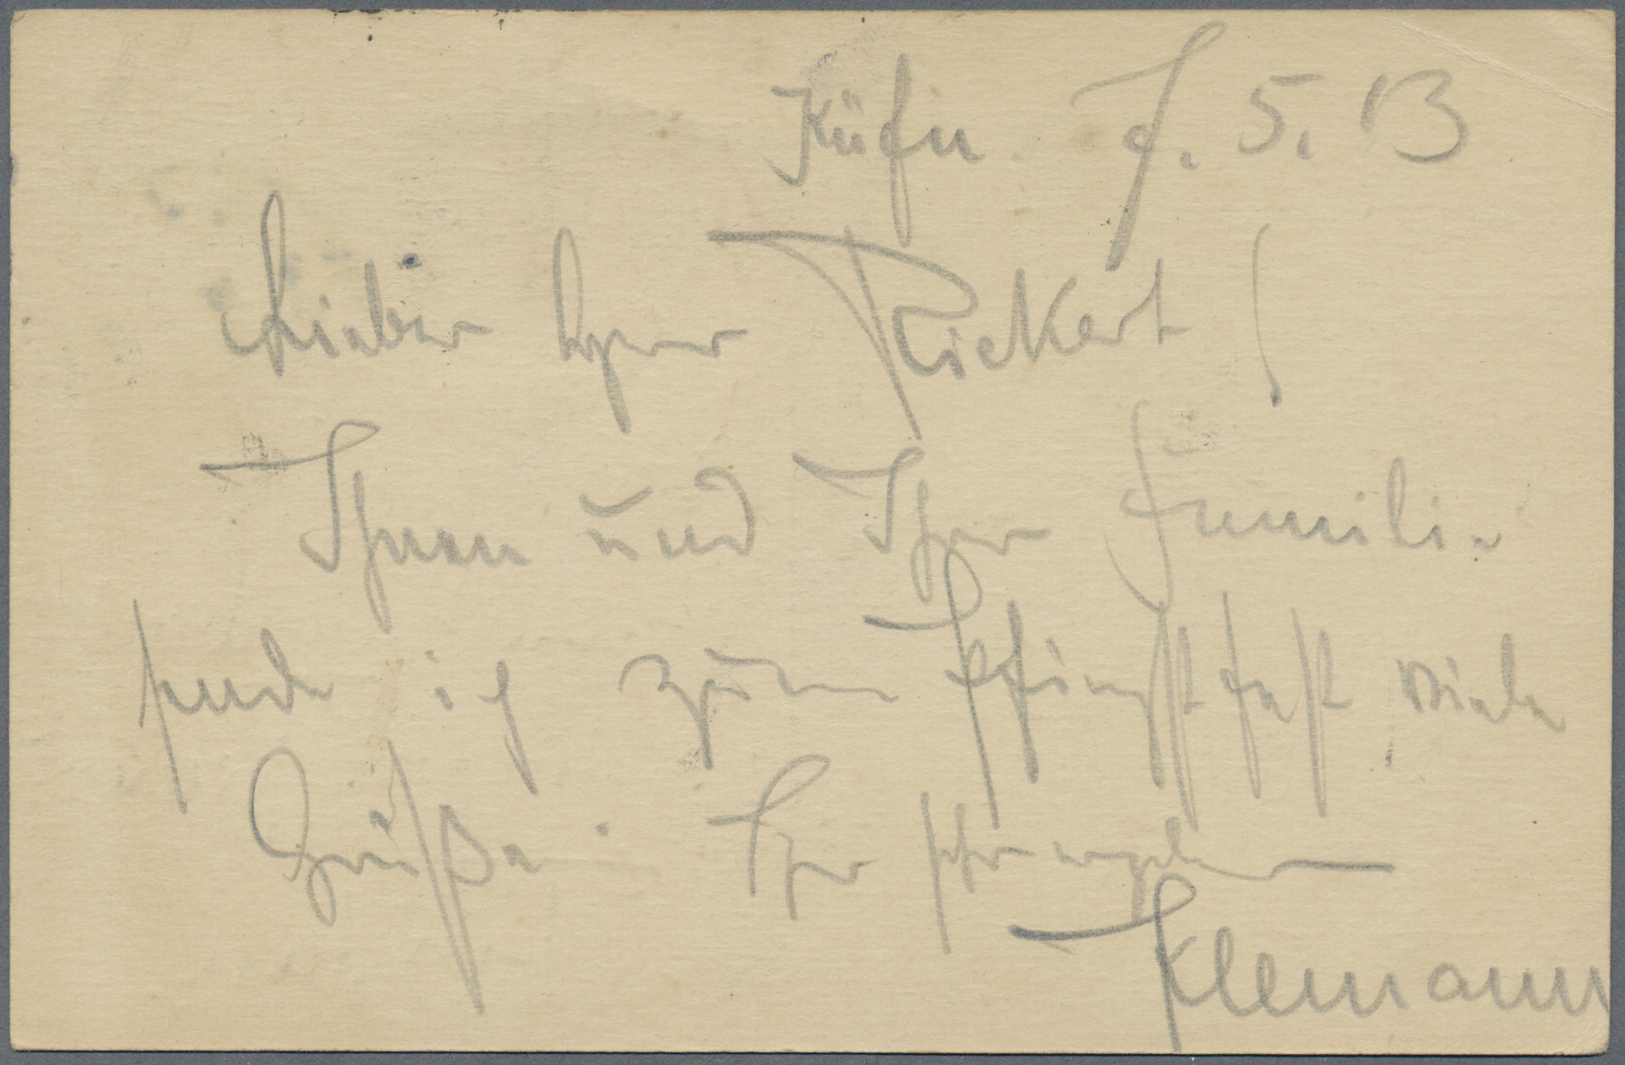 Küfn. 7. 5. 13
Lieber Herr Rickert!
Ihnen und Ihrer Familie
sende ich zum Pfingstfest viele
Grüße. Ihr sehr ergebener
Klemann